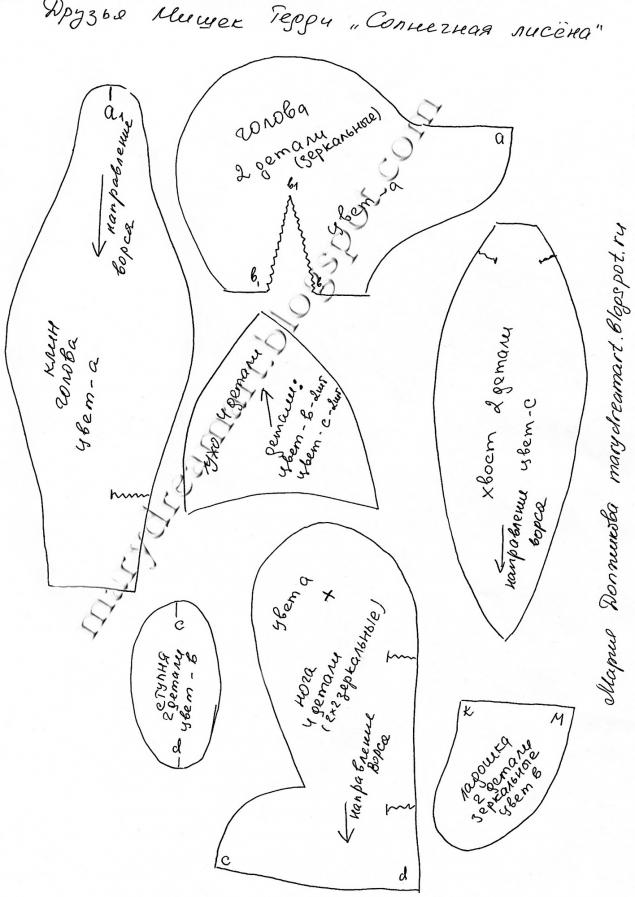 Друзья Мишек Терри „Солнечная лисёна"
а
направление
ворса
клин
голова
цвет-а
голова
2 детали
(зеркальные)
цвет-а
а
в₁
в₁
в
ухо 4 детали
детали:
цвет-в-2шт
цвет-с-2шт
хвост 2 детали
цвет-с
направление
ворса
с
ступня
2 детали
цвет-в
d
цвет а
+
нога
4 детали
(2х2 зеркальные)
направление
ворса
с
d
к
м
ладошка
2 детали
зеркальные
цвет в
Мария Долтикова marydreamart.blogspot.ru
marydreamart.blogspot.com